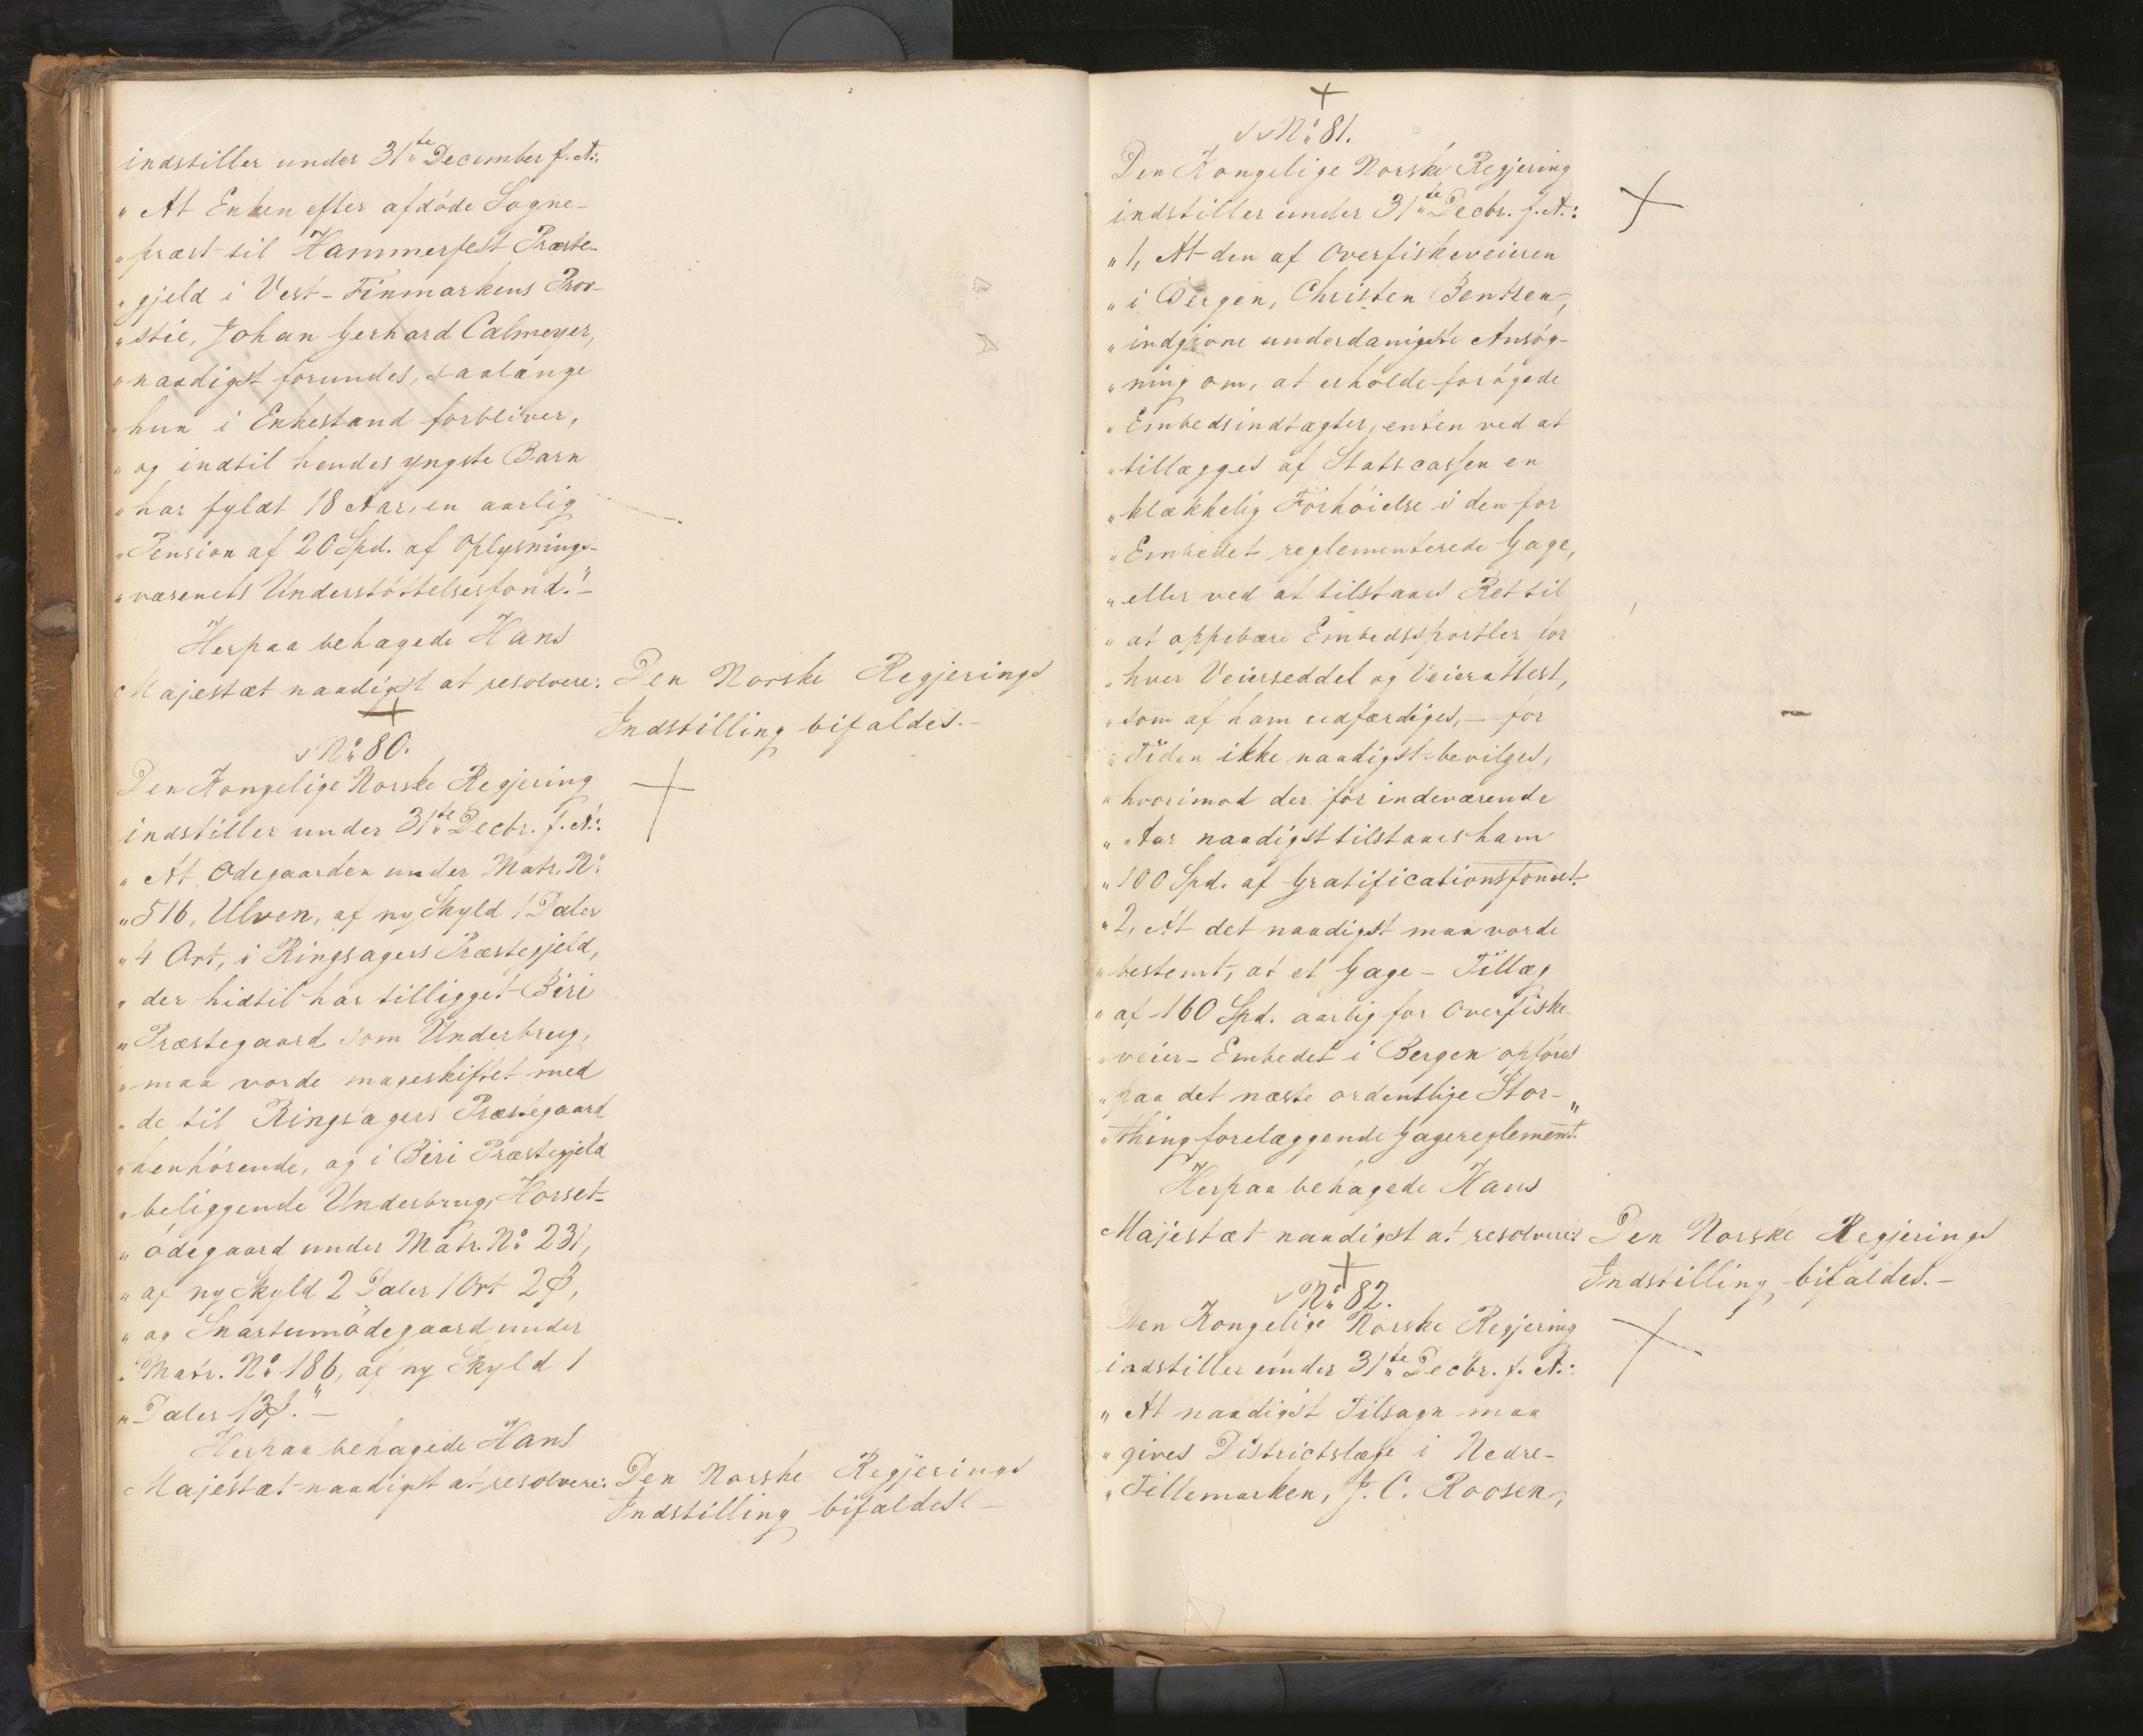 indstiller under 31te December f. A.:
„At Enken efter afdøde Sogne-
„præst til Hammerfest Præste-
„gjeld i Vest-Finmarkens Prov-
„stie, Johan Gerhard Calmeyer,
„naadigst forundes, saalænge
„hun i Enkestand forbliver,
„og indtil hendes yngste Barn
„har fyldt 18 Aar, en aarlig
„Pension af 20 Spd. af Oplysnings-
„væsenets Understøttelsesfond."-
Herpaa behagede Hans
Majestæt naadigst at resolvere:
Den Norske Regjerings
Indstilling bifaldes.-
No 80.
Den Kongelige Norske Regjering
indstiller under 31te Decbr. f. A.:
„At Ødegaarden under Matr. No
„516, Ulven, af ny Skyld 1 Daler
„4 Ort, i Ringsagers Præstegjeld,
„der hidtil har tilligget Biri
„Præstegaard som Underbrug,
„maa vorde mageskiftet med
„de til Ringsagers Præstegaard
„henhørende, og i Biri Præstegjeld
„beliggende Underbrug, Horset-
„ødegaard under Matr. No 231,
„af ny Skyld 2 Daler 1 Ort 2 ß,
„og Snartumødegaard under
„Matr. No 186, af ny Skyld 1
„Daler 13 ß."-
Herpaa behagede Hans
Majestæt naadigst at resolvere:
Den Norske Regjerings
Indstilling bifaldes.-
No 81.
Den Kongelige Norske Regjering
indstiller under 31te Decbr. f. A.:
„1, At den af Overfiskeveieren
„i Bergen, Christen Bentsen,
„indgivne underdanigste Ansøg-
„ning om, at erholde forøgede
„Embedsindtægter, enten ved at
„tillægges af Statscassen en
„klækkelig Forhøielse i den for
„Embedet reglementerede Gage,
„eller ved at tilstaaes Ret til
„at oppebære Embedssportler for
„hver Veierseddel og Veierattest,
„som af ham udfærdiges, - for
„Tiden ikke naadigst bevilges,
„hvorimod der for indeværende
„Aar naadigst tilstaaes ham
„100 Spd. af Gratificationsfondet.
„2, At det naadigst maa vorde
„bestemt, at et Gage-Tillæg
„af 160 Spd. aarlig for Overfiske-
„veier-Embedet i Bergen opføres
„paa det næste ordentlige Stor-
„thing forelæggende Gagereglement."
Herpaa behagede Hans
Majestæt naadigst at resolvere:
Den Norske Regjerings
Indstilling bifaldes.-
No 82.
Den Kongelige Norske Regjering
indstiller under 31te Decbr. f. A.:
„At naadigst Tilsagn maa
„gives Districtslæge i Nedre-
„Tillemarken, J. C. Roosen,